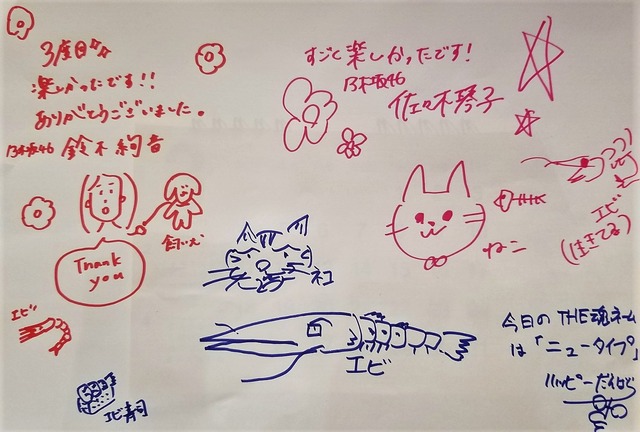 3度目〃
楽しかったです!!
ありがとうございました。
乃木坂46 鈴木絢音
Thank
you
飼い犬
エビ
エビ寿司
すごく楽しかったです!
乃木坂46
佐々木琴子
ねこ
エビ
(生きてる)
ネコ
エビ
今日のTHE魂ネーム
は「ニュータイプ」
ハッピーだけど